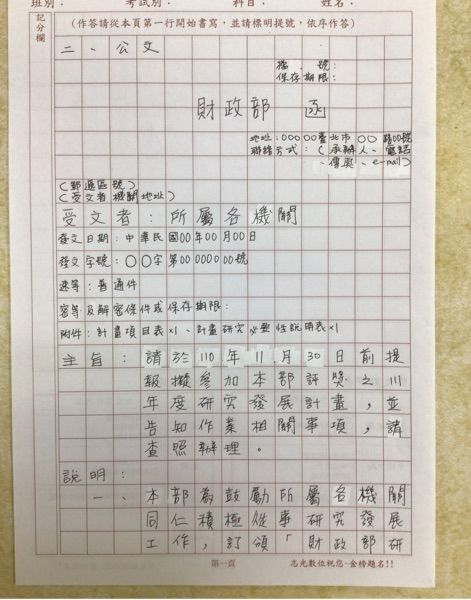 班別： 考試別： 科目： 姓名：
記分欄
(作答請從本頁第一行開始書寫，並請標明提號，依序作答)
二、公文
檔 號：
保存期限：
財政部 函
地址：00000臺北市〇〇路00號
聯絡方式：(承辦人、電話
、傳真、e-mail)
(郵遞區號)
(受文者機關地址)
受文者：所屬各機關
發文日期：中華民國00年00月00日
發文字號：〇〇字第0000000號
速等：普通件
密等及解密條件或保存期限：
附件：計畫項目表×1、計畫研究必要性說明表×1
主旨：請於110年11月30日前提
報擬參加本部評獎之111
年度研究發展計畫，並
告知作業相關事項，請
查照辦理。
說明：
一、本部為鼓勵所屬各機關
同仁積極從事研究發展
工作，訂頒「財政部研
第一頁
志光數位祝您~金榜題名!!